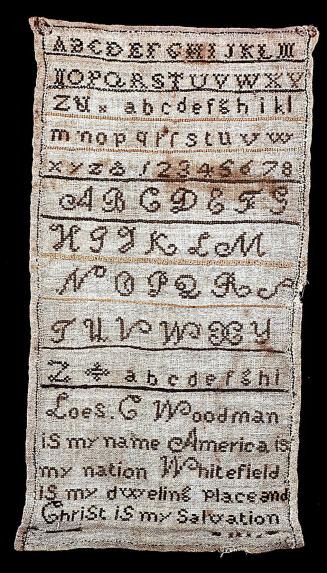 ABCDEFGHIJKLM
NOPQRSTUVWXY
ZU abcdefghikl
mnopqrſstuvw
xyz& 12345678
ABCDEFG
HIJKLM
NOPQRS
TUVWXY
Z abcdefghi
Loes. C Woodman
is my name America is
my nation Whitefield
is my dweling place and
Christ is my Salvation